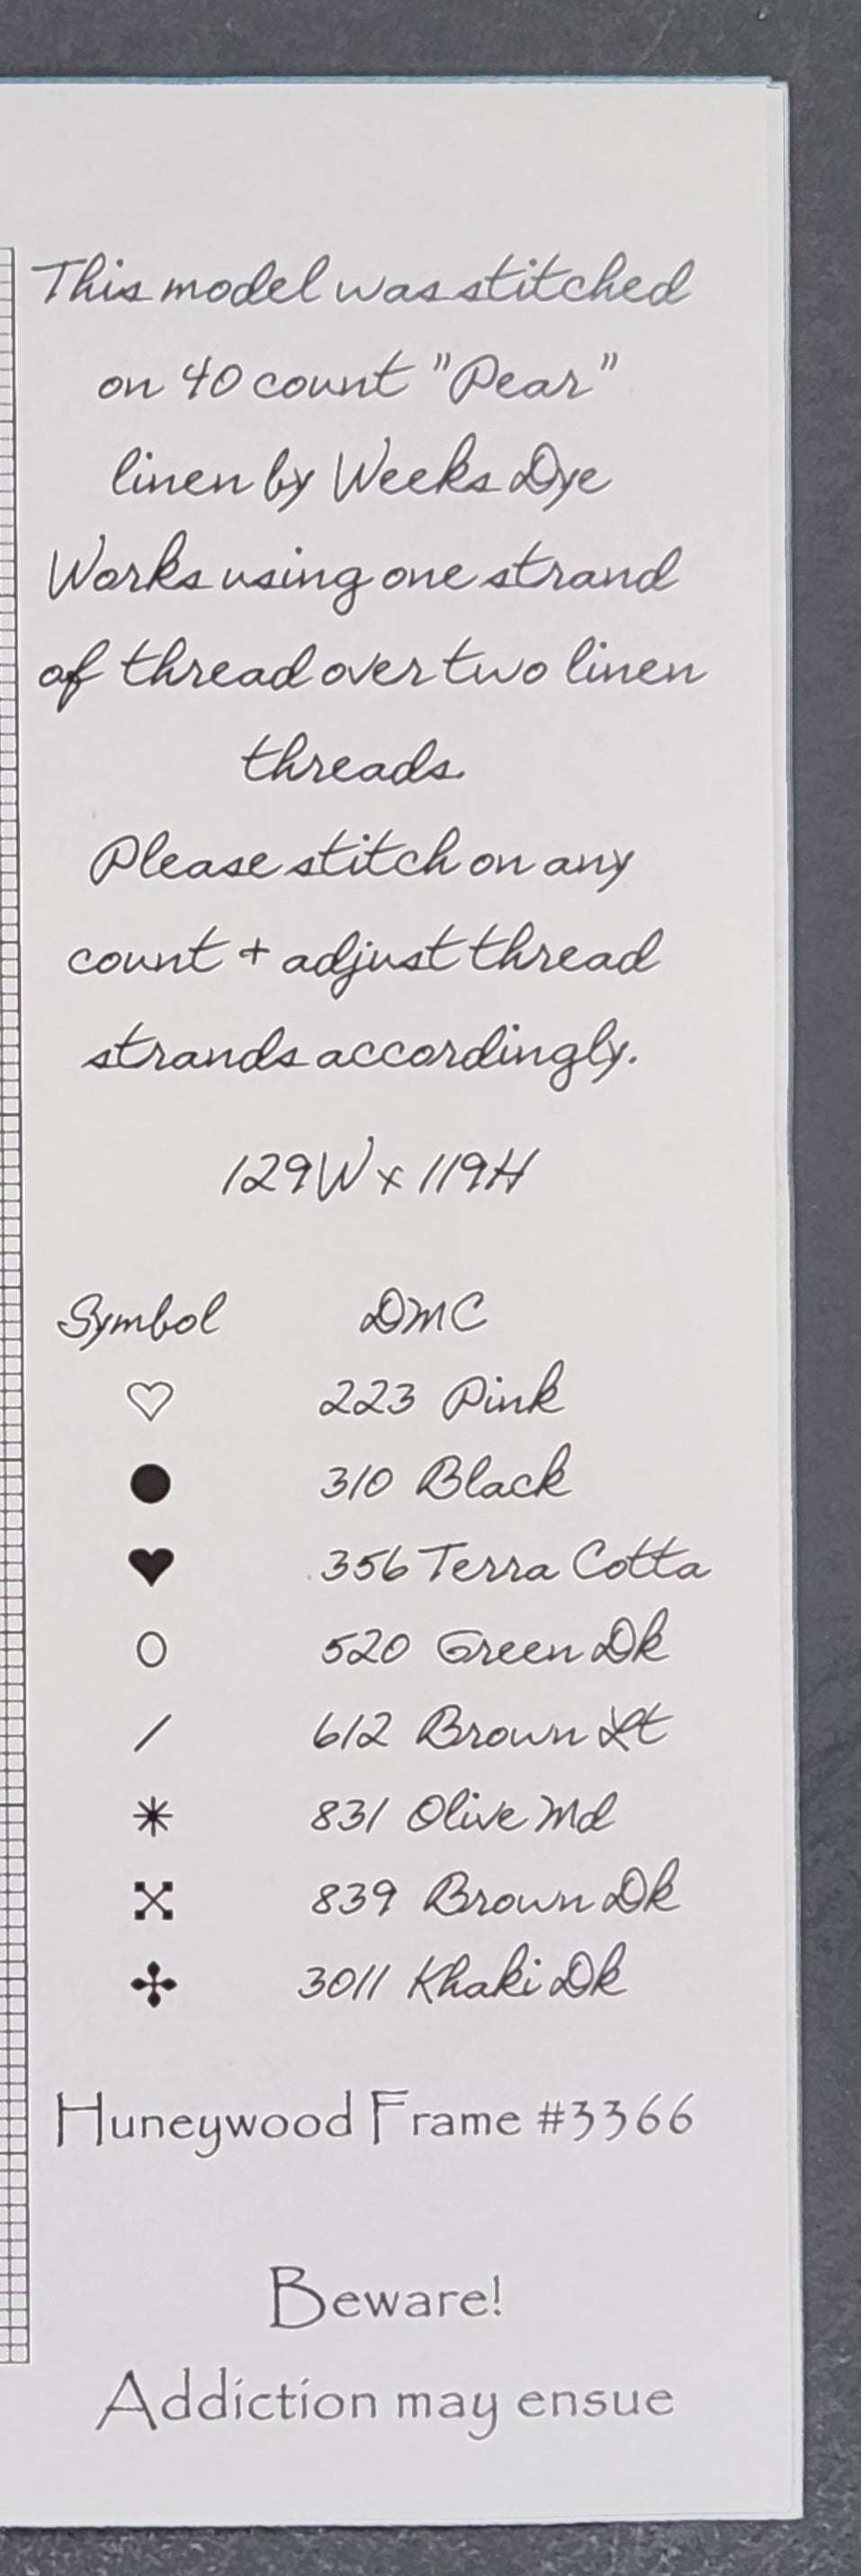 This model was stitched
on 40 count "Pear"
linen by Weeks Dye
Works using one strand
of thread over two linen
threads.
Please stitch on any
count + adjust thread
strands accordingly.
129W x 119H
Symbol DMC
♡ 223 Pink
● 310 Black
♥ 356 Terra Cotta
O 520 Green Dk
/ 612 Brown Lt
✳ 831 Olive Md
839 Brown Dk
✣ 3011 Khaki Dk
Huneywood Frame #3366
Beware!
Addiction may ensue